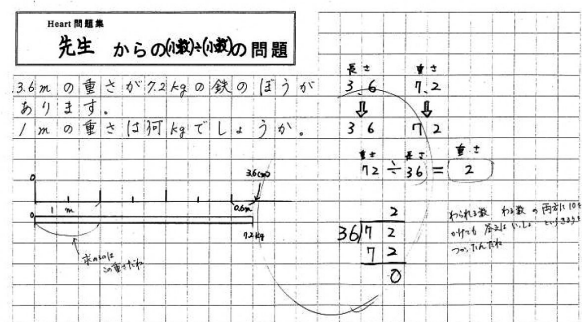 Heart問題集
先生 からの(小数)÷(小数)の問題
3.6mの重さが7.2kgの鉄のぼうが
あります。
1mの重さは何kgでしょうか。
0
3.6(m)
1 m
0.6m
0
7.2kg
求めるのは
この重さだね
長さ 重さ
3.6 7.2
⇩ ⇩
36 72
重さ 長さ 重さ
72÷36=2
2
36)72
72
0
わられる数 わる数 の両方に10を
かけても 答えは いっしょ というきまりを
つかったんだね